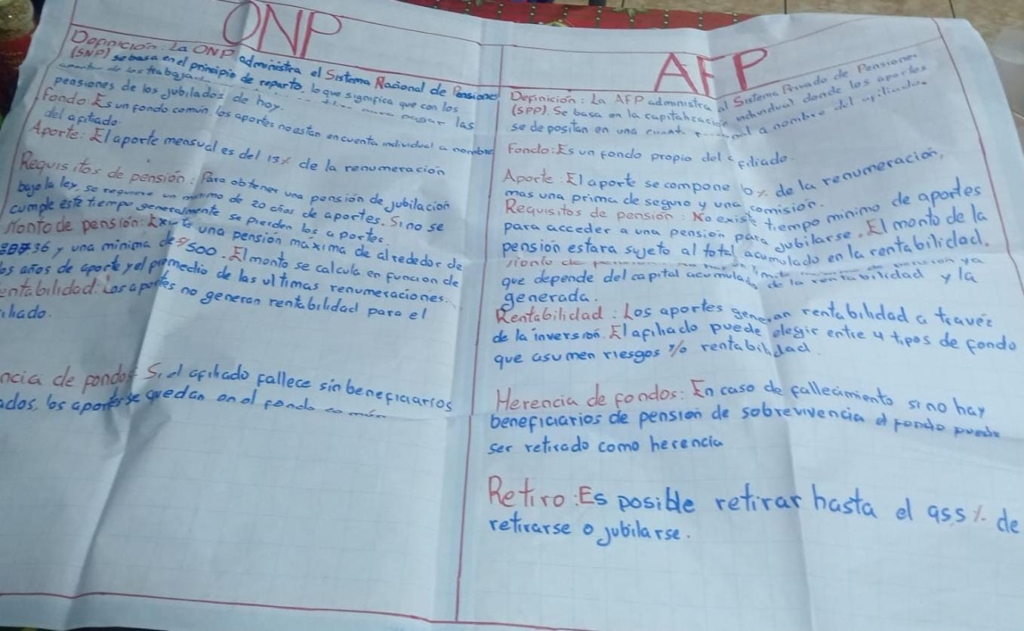 ONP
Definición: La ONP administra el Sistema Nacional de Pensiones
(SNP) se basa en el principio de reparto, lo que significa que con los
pensiones de los jubilados de hoy.
Fondo: Es un fondo común los aportes no estan en cuenta individual a nombre
del afiliado.
Aporte: El aporte mensual es del 13% de la renumeración
Requisitos de pensión: Para obtener una pensión de jubilación
bajo la ley, se requiere un mínimo de 20 años de aportes. Si no se
cumple este tiempo generalmente se pierden los aportes.
Monto de pensión: Existe una pensión máxima de alrededor de
y una mínima de 500. El monto se calcula en función de
los años de aporte y el promedio de las ultimas renumeraciones.
entabilidad: Los aportes no generan rentabilidad para el
iliado.
ncia de fondos: Si el afiliado fallece sin beneficiarios
ados, los aportes se quedan en el fondo común
AFP
Definición: La AFP administra el Sistema Privado de Pensiones
(SPP). Se basa en la capitalización individual donde los aportes
se depositan en una a nombre del afiliado
Fondo: Es un fondo propio del afiliado.
Aporte: El aporte se compone 10% de la renumeración,
mas una prima de seguro y una comisión.
Requisitos de pensión: No existe tiempo minimo de aportes
para acceder a una pensión para jubilarse. El monto de la
pensión estara sujeto al total acumulado en la rentabilidad.
que depende del capital acumulado de la rentabilidad y la
generada.
Rentabilidad: Los aportes generan rentabilidad a través
de la inversión. El afiliado puede elegir entre 4 tipos de fondo
que asumen riesgos y/o rentabilidad.
Herencia de fondos: En caso de fallecimiento si no hay
beneficiarios de pensión de sobrevivencia el fondo puede
ser retirado como herencia
Retiro: Es posible retirar hasta el 95.5% de
retirarse o jubilarse.